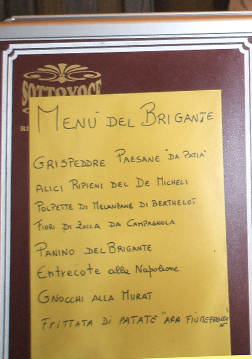 SOTTOVOCE
MENU' DEL BRIGANTE
GRISPEDDRE PAESANE "DA PATIA"
ALICI RIPIENI DEL DE MICHELI
POLPETTE DI MELANZANE DI BERTHELOT
FIORI DI ZUCCA DA CAMPAGNOLA
PANINO DEL BRIGANTE
Entrecote alla Napoleone
GNOCCHI ALLA MURAT
FRITTATA DI PATATE "ARA